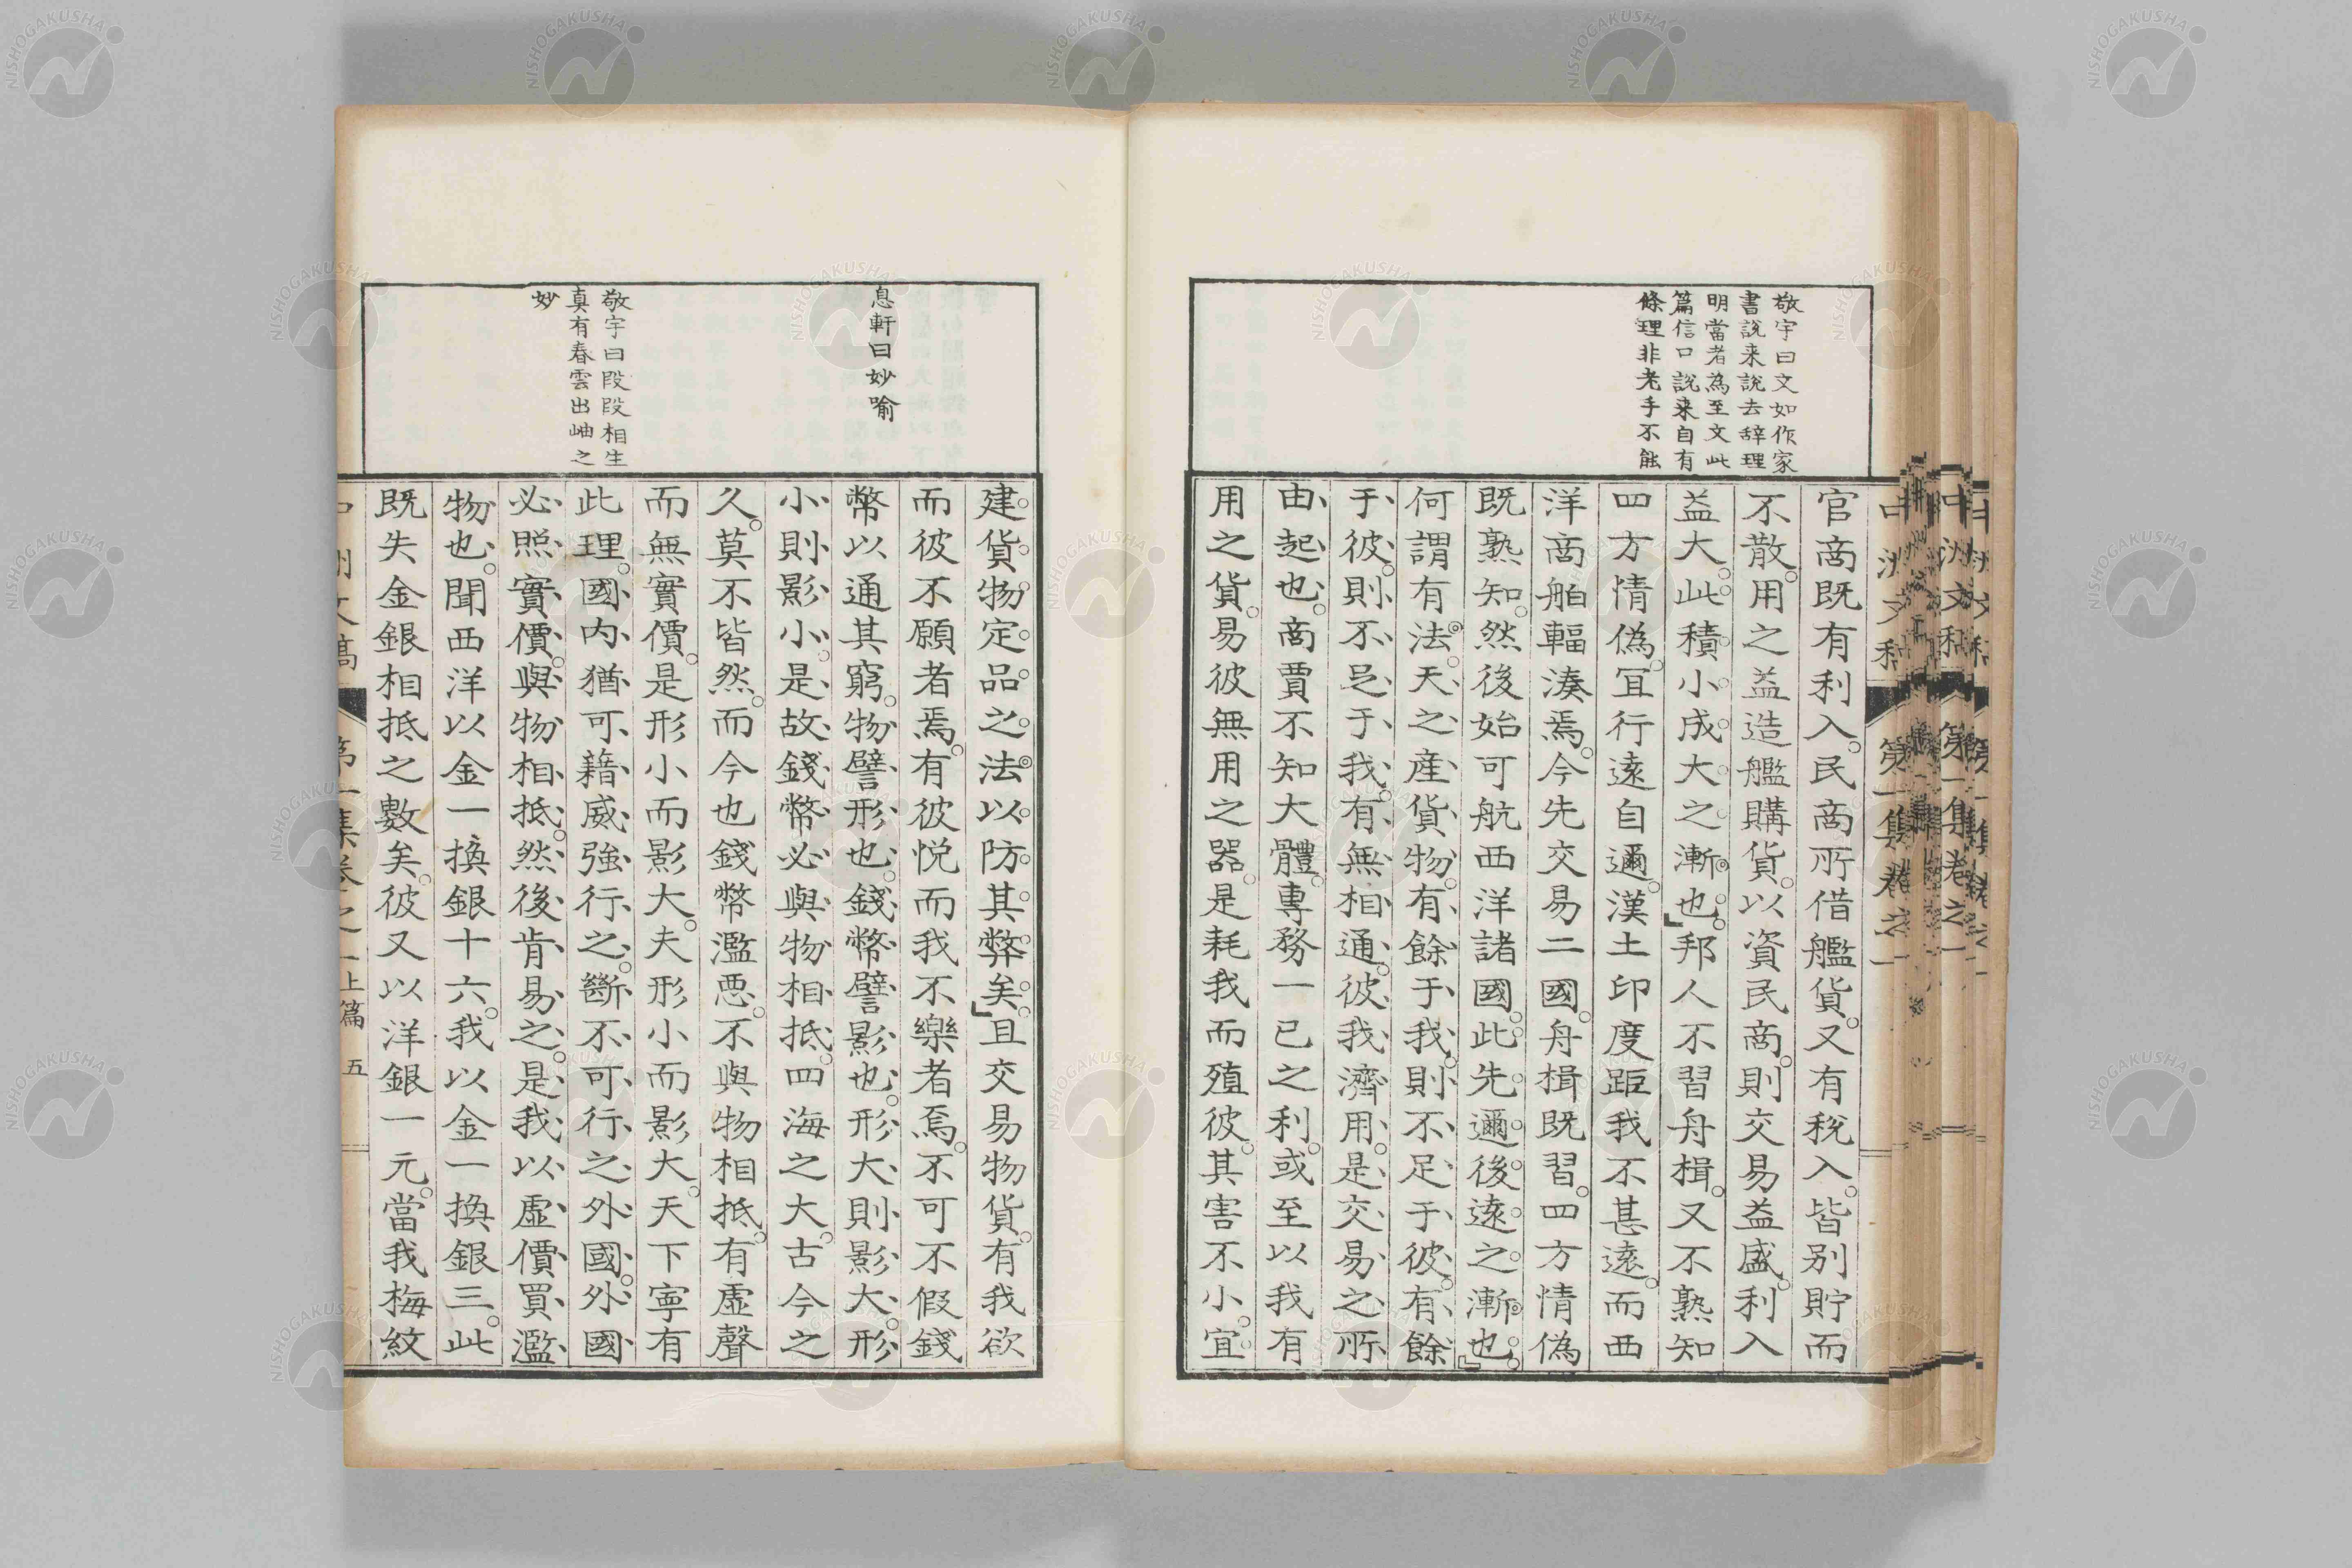 敬宇曰文如作家
書說来說去辞理
明當者為至文此
篇信口說来自有
條理非老手不能
官商既有利入。民商所借艦貨。又有稅入。皆別貯而
不散。用之益造艦購貨。以資民商。則交易益盛。利入
益大。此積小成大之漸也。」邦人不習舟楫。又不熟知
四方情偽。冝行遠自邇。漢土印度距我不甚遠。而西
洋商舶輻湊焉。今先交易二國。舟楫既習。四方情偽
既熟知。然後始可航西洋諸國。此先邇後遠之漸也。」
何謂有法。天之産貨物。有餘于我。則不足于彼。有餘
于彼。則不足于我。有無相通。彼我濟用。是交易之所
由起也。商賈不知大體。專務一己之利。或至以我有
用之貨。易彼無用之器。是耗我而殖彼。其害不小。宜
息軒曰妙喻
敬宇曰段段相生
真有春雲出岫之
妙
建貨物定品之法以防其弊矣。」且交易物貨。有我欲
而彼不願者焉。有彼悦而我不樂者焉。不可不假錢
幣以通其窮。物譬形也。錢幣譬影也。形大則影大。形
小則影小。是故錢幣必與物相抵。四海之大。古今之
久。莫不皆然。而今也錢幣濫惡。不與物相抵。有虛聲
而無實價。是形小而影大。夫形小而影大。天下寧有
此理。國内猶可藉威強行之。斷不可行之外國。外國
必照實價。與物相抵。然後肯易之。是我以虛價買濫
物也。聞西洋以金一換銀十六。我以金一換銀三。此
既失金銀相抵之數矣。彼又以洋銀一元。當我梅紋
第一集卷之一上篇 五